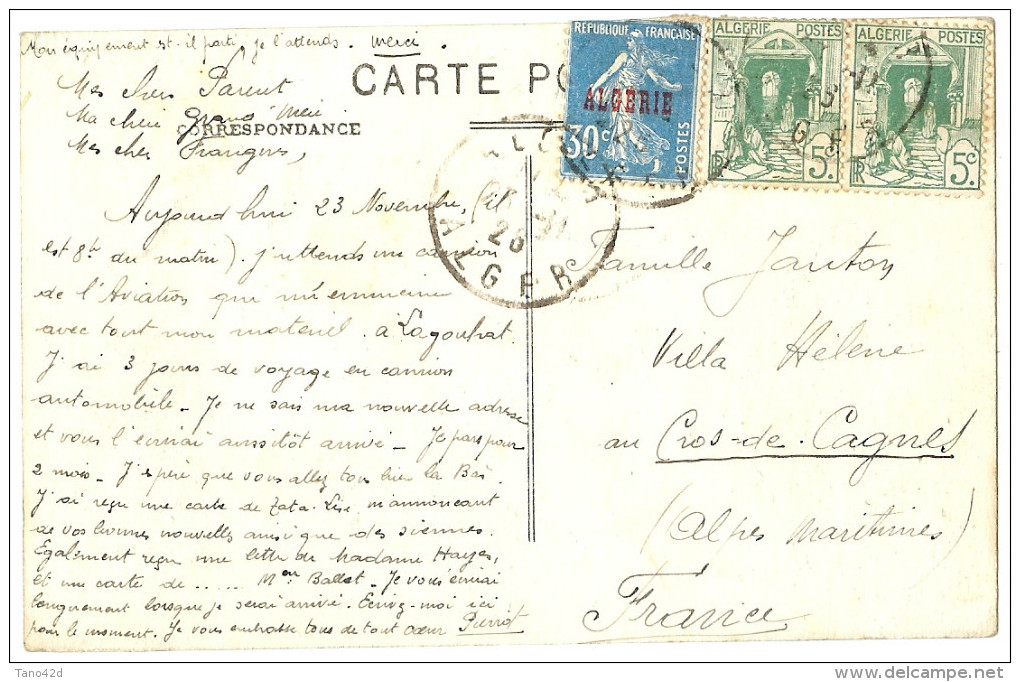 Mon équipement est-il parti, je l'attends. merci.
CARTE PO
Mes chers Parent
Ma chère Grand'Mère
CORRESPONDANCE
Mes cher Frangines,
Aujourd'hui 23 Novembre, (il
est 8h du matin). J'attends un camion
de l'Aviation qui m'emmène
avec tout mon matériel. a Lagouhat.
J'ai 3 jours de voyage en camion
automobile. Je ne sais ma nouvelle adresse
et vous l'écrirai aussitôt arrivé - Je pars pour
2 mois. J'espère que vous allez tous bien la Bas.
J'ai reçu une carte de Tata Lise m'annoncant
de vos bonnes nouvelles ainsi que des siennes.
Egalement reçu une lettre de Madame
et une carte de ...... Mon Ballet. Je vous écrirai
longuement lorsque je serai arrivé. Ecrivez-moi ici
pour le moment. Je vous embrasse tous de tout cœur Pierrot
REPUBLIQUE FRANÇAISE
ALGERIE
30c
POSTES
ALGERIE POSTES
5c
ALGERIE POSTES
5c
ALGER
26
Famille Jauton
Villa Hélène
au Cros-de-Cagnes
(Alpes Maritimes)
France
Tano42d
delcampe.net